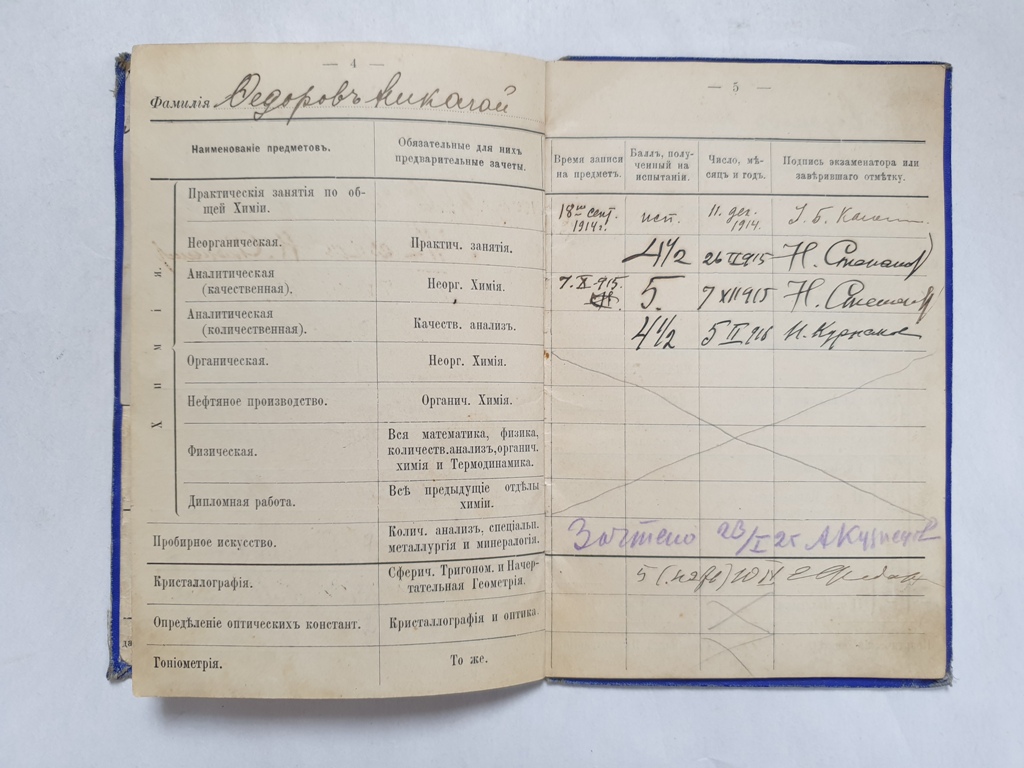 — 4 —
Фамилія Ѳедоровъ Николай
Наименованіе предметовъ.
Обязательные для нихъ
предварительные зачеты.
Химія.
Практическія занятія по об-
щей Химіи.
Неорганическая.
Практич. занятія.
Аналитическая
(качественная).
Неорг. Химія.
Аналитическая
(количественная).
Качеств. анализъ.
Органическая.
Неорг. Химія.
Нефтяное производство.
Органич. Химія.
Физическая.
Вся математика, физика,
количеств.анализъ,органич.
химія и Термодинамика.
Дипломная работа.
Всѣ предыдущіе отдѣлы
химіи.
Пробирное искусство.
Колич. анализъ, спеціальн.
металлургія и минералогія.
Кристаллографія.
Сферич. Тригоном. и Начер-
тательная Геометрія.
Опредѣленіе оптическихъ констант.
Кристаллографія и оптика
Гоніометрія.
То же.
— 5 —
Время записи
на предметъ.
Баллъ, полу-
ченный на
испытаніи.
Число, мѣ-
сяцъ и годъ.
Подпись экзаменатора или
завѣрившаго отмѣтку.
18го сент.
1914г.
исп.
11. дек.
1914.
4½ 26 II 915 Н. Степанов
7. X 915.
5. 7 XII 915 Н. Степанов
4½ 5 II 916 Н. Курнаков
Зачтено 23/I 25 А Кузнецов
5